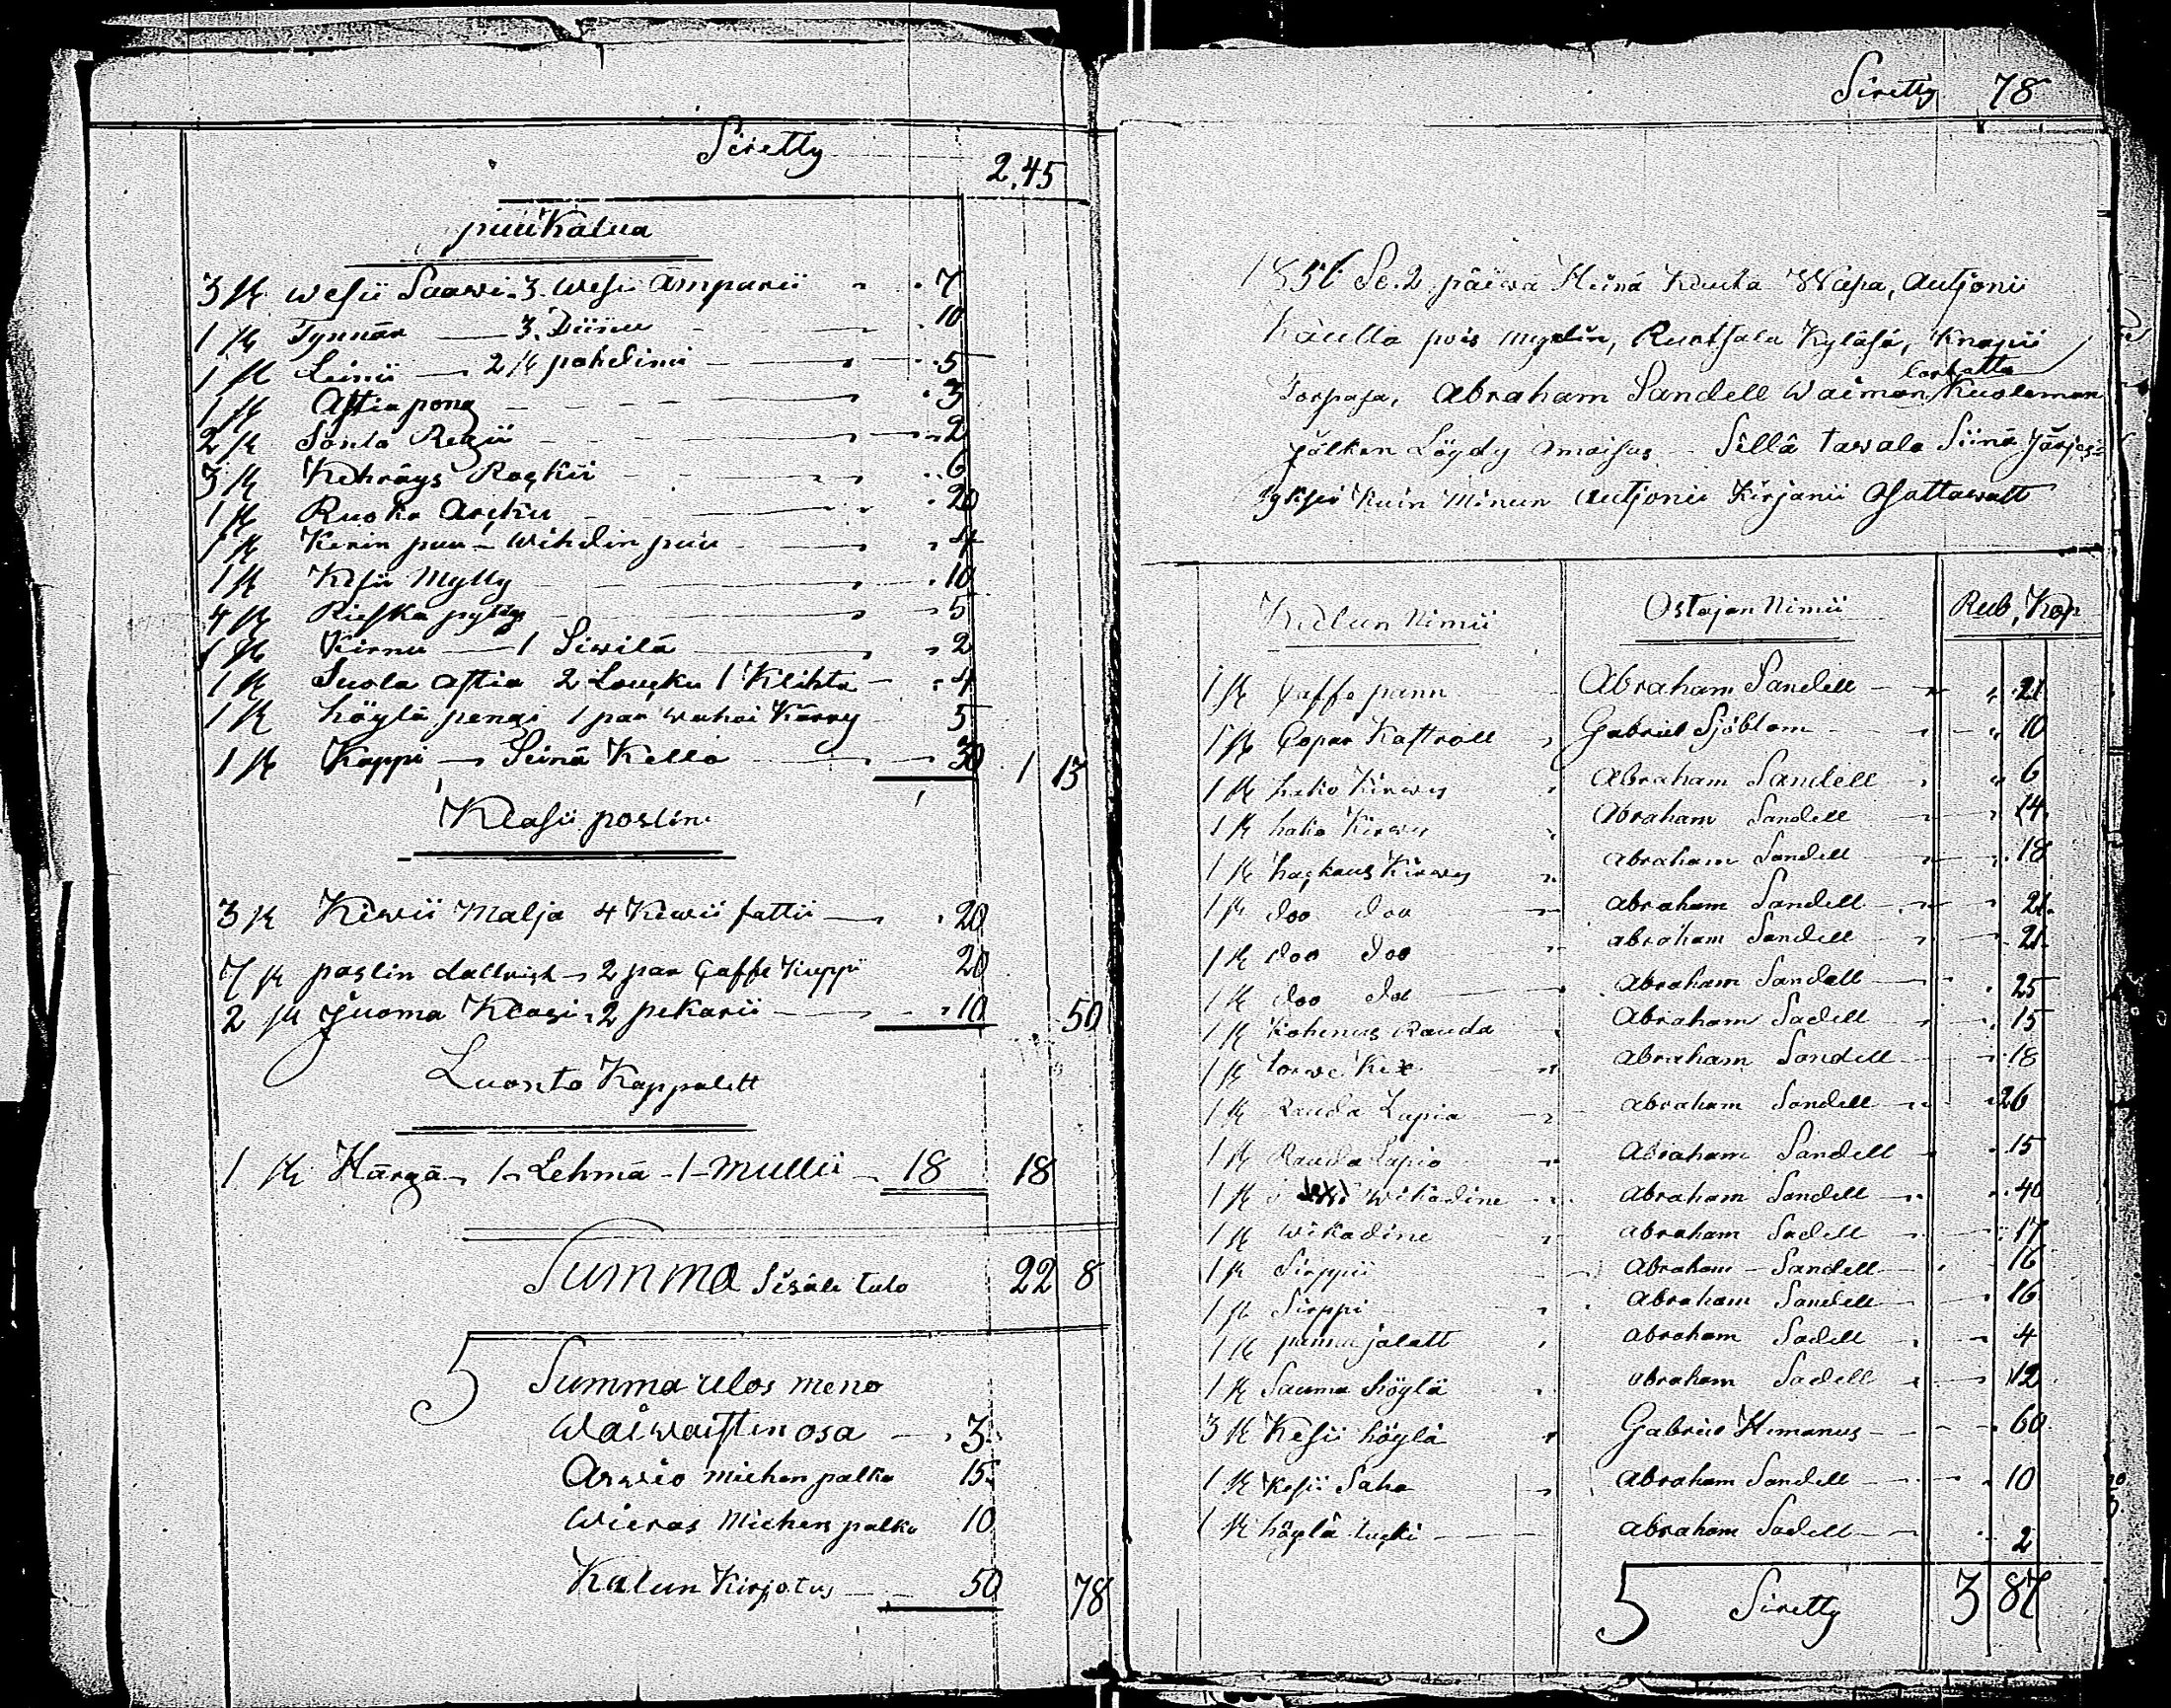 Siretty
2,45
puuKalua
3 K wesii Saawi. 3. wesi ämparii 7
1 K Tynnär 3. Tiinu 10
1 K Leinii 2 K pohdimi 5
1 K Astia pong 3
2 K Sonta Regii 2
3 K Kehräys Rockii 6
1 K Ruoka arcku 20
1 K Kerin puu wihdin puu 4
1 K Kesii Mylly 10
4 K Rieska pytty 5
1 K Kirnu 1 Siwilä 2
1 K Suola astia 2 Loucku 1 Klihta 4
1 K höylä pengi 1 par wanhai Kärry 5
1 K Kappi Seinä Kello 30 1 13
Klasii poslin
3 K Kiwii Malja 4 Kiwii fattii 20
7 K poslin dallrick 2 par Caffe Kuppi 20
2 K Juoma Klasi. 2 pekarii 10 50
Luonto Kappalett
1 K Härgä 1 Lehmä 1 Mullii 18 18
Summa Sisäle tulo 22 8
5 Summa ulos meno
Waiwaisten osa 3
Arwio miehen palka 15
Wieras Miehen palka 10
Kalun Kirjotus 50 78
Siretty 78
1856 Se. 2 päiwä Heinä Kuuta Wapa, autjonii
Kautta pois mydin, Runtsala Kyläsä, Knapii
Torpasa, Abraham Sandell Waiman Kuoleman
jälken Löydy omaisus Sillä tawala Siinä Järjes=
tyksii Kuin Minun autjonii Kirjanii Osattawatt
Kalun Nimii Ostajan Nimii Rub, Kop
1 K Caffe pann Abraham Sandell 21
1 K Copar Kastroll Gabriel Sjöblom 10
1 K hako Kirwes Abraham Sandell 6
1 K hako Kirwes Abraham Sandell 14
1 K hackaus Kirwes abraham Sandell 18
1 K doo doo abraham Sandell 21
1 K doo doo abraham Sandell 21
1 K doo doo abraham Sandell 25
1 K Kohenus Rauda Abraham Sadell 15
1 K torwe Kex abraham Sandell 18
1 K Rauda Lapia abraham Sandell 26
1 K Rauda Lapio Abraham Sandell 15
1 K Wikadine Abraham Sandell 40
1 K Wikadine abraham Sadell 17
1 K Sirppii Abraham Sandell 16
1 K Sirppi Abraham Sandell 16
1 K pannu jalatt Abraham Sadell 4
1 K Sauma höylä abraham Sadell 12
3 K Kesii höylä Gabriel Himanus 60
1 K Kesii Saha Abraham Sandell 10
1 K höylä tucki abraham Sadell 2
5 Siretty 3 87